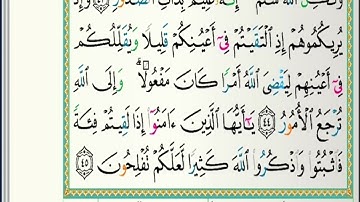 وَلَٰكِنَّ ٱللَّهَ سَلَّمَ ۗ إِنَّهُۥ عَلِيمٌۢ بِذَاتِ ٱلصُّدُورِ ٤٣ وَإِذْ
يُرِيكُمُوهُمْ إِذِ ٱلْتَقَيْتُمْ فِىٓ أَعْيُنِكُمْ قَلِيلًا وَيُقَلِّلُكُمْ
فِىٓ أَعْيُنِهِمْ لِيَقْضِىَ ٱللَّهُ أَمْرًا كَانَ مَفْعُولًا ۗ وَإِلَى ٱللَّهِ
تُرْجَعُ ٱلْأُمُورُ ٤٤ يَٰٓأَيُّهَا ٱلَّذِينَ ءَامَنُوٓا۟ إِذَا لَقِيتُمْ فِئَةً
فَٱثْبُتُوا۟ وَٱذْكُرُوا۟ ٱللَّهَ كَثِيرًا لَّعَلَّكُمْ تُفْلِحُونَ ٤٥